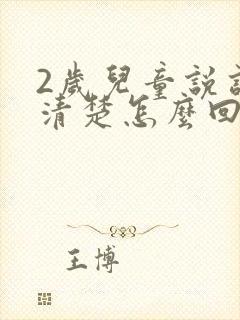 2歲兒童說
清楚怎麼回
王博